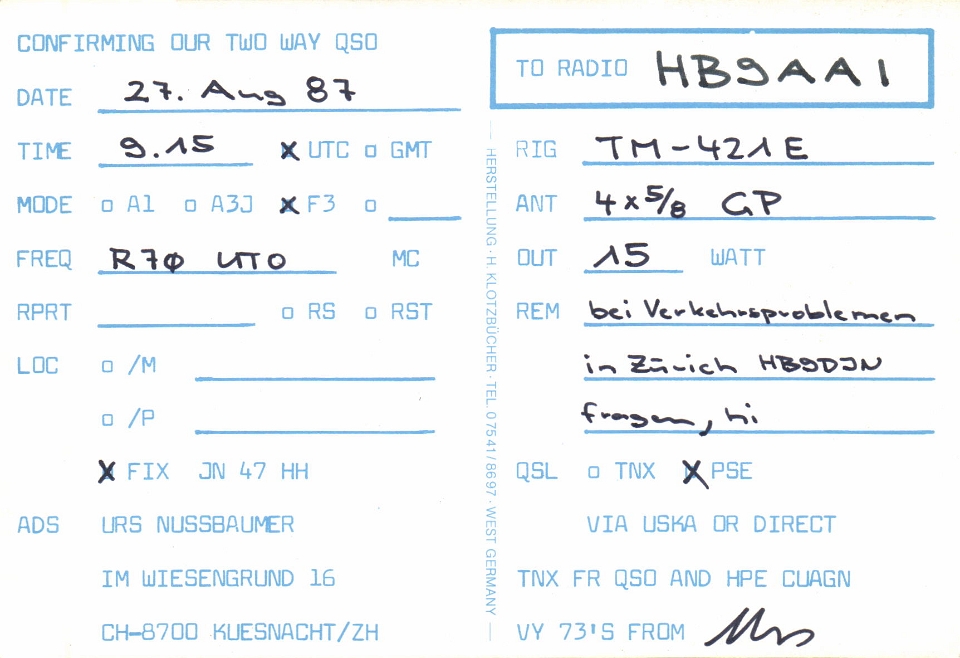 CONFIRMING OUR TWO WAY QSO
DATE 27. Aug 87
TIME 9.15 X UTC GMT
MODE A1 A3J X F3
FREQ R70 UTO MC
RPRT RS RST
LOC /M
/P
X FIX JN 47 HH
ADS URS NUSSBAUMER
IM WIESENGRUND 16
CH-8700 KUESNACHT/ZH
HERSTELLUNG · H. KLOTZBÜCHER · TEL. 07541/8697 · WEST GERMANY
TO RADIO HB9AA1
RIG TM-421E
ANT 4x5/8 GP
OUT 15 WATT
REM bei Verkehrsproblemen
in Zürich HB9DJN
fragen, hi
QSL TNX X PSE
VIA USKA OR DIRECT
TNX FR QSO AND HPE CUAGN
VY 73'S FROM Urs